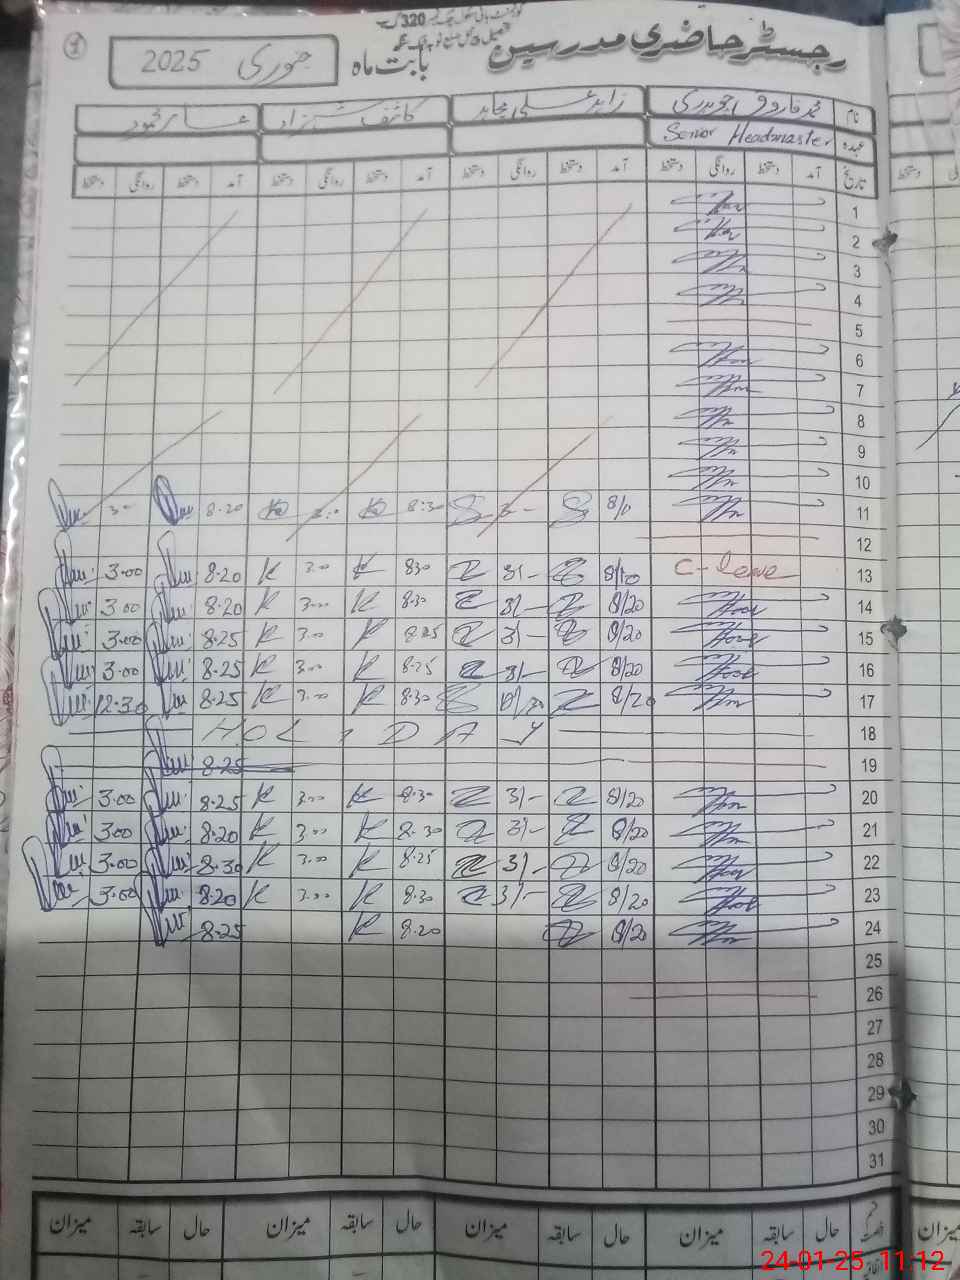 گورنمنٹ ہائی سکول چک نمبر 320 گ ب
رجسٹر حاضری مدرسین
بابت ماہ جنوری 2025
1
نام محمد فاروق چوہدری زاہد علی مجاہد کاشف شہزاد عامر محمود
عہدہ Senior Headmaster
تاریخ آمد دستخط روانگی دستخط آمد دستخط روانگی دستخط آمد دستخط روانگی دستخط آمد دستخط روانگی دستخط
1
2
3
4
5
6
7
8
9
10
11 8:30 8.20
12
13 C-Leave 3/- 830 3.00 8.20 3.00
14 8/20 3/- 8.30 3.00 8.20 3.00
15 8/20 3/- 8.25 3.00 8.25 3.00
16 8/20 3/- 8.25 3.00 8.25 3.00
17 8/20 8.30 3.00 8.25 12.30
18 HOLIDAY
19 8.25
20 8/20 3/- 8.30 3.00 8.25 3.00
21 8/20 3/- 8.30 3.00 8.20 3.00
22 8/20 3/- 8.25 3.00 8.30 3.00
23 8/20 3/- 8.30 3.00 8.20 3.00
24 8/20 8.20 8.25
25
26
27
28
29
30
31
حال سابقہ میزان حال سابقہ میزان حال سابقہ میزان حال سابقہ میزان
24-01-25 11:12